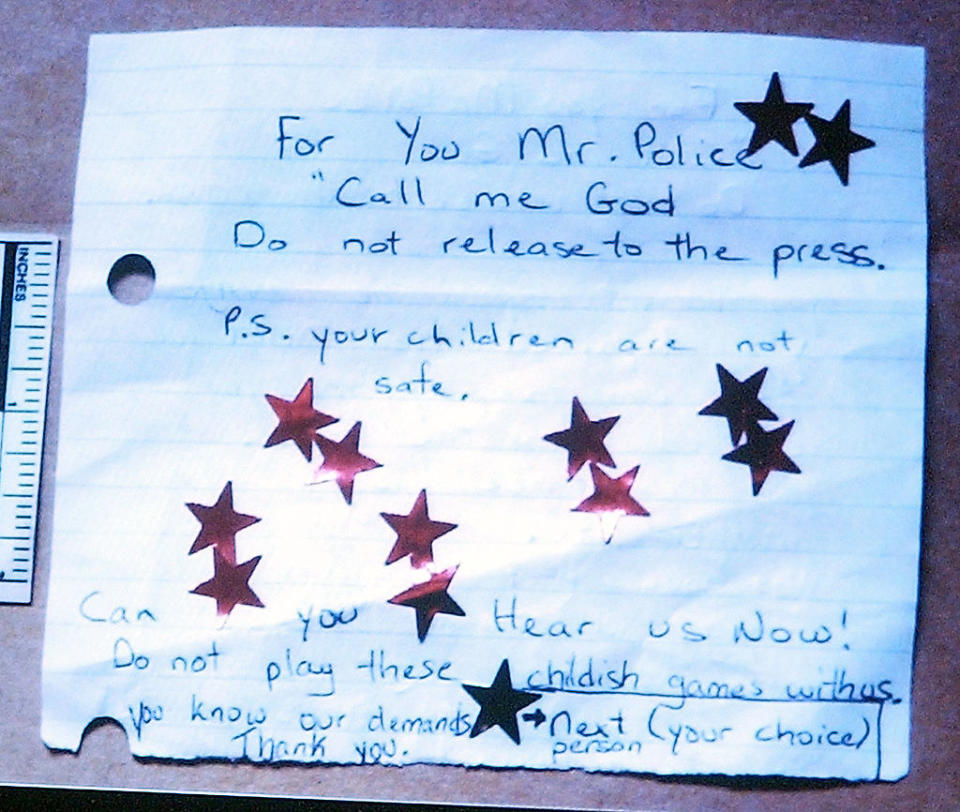 For You Mr. Police
"Call me God
Do not release to the press.
P.S. your children are not
safe.
Can you Hear us Now!
Do not play these childish games with us.
You know our demands → Next person (your choice)
Thank you.
INCHES
1